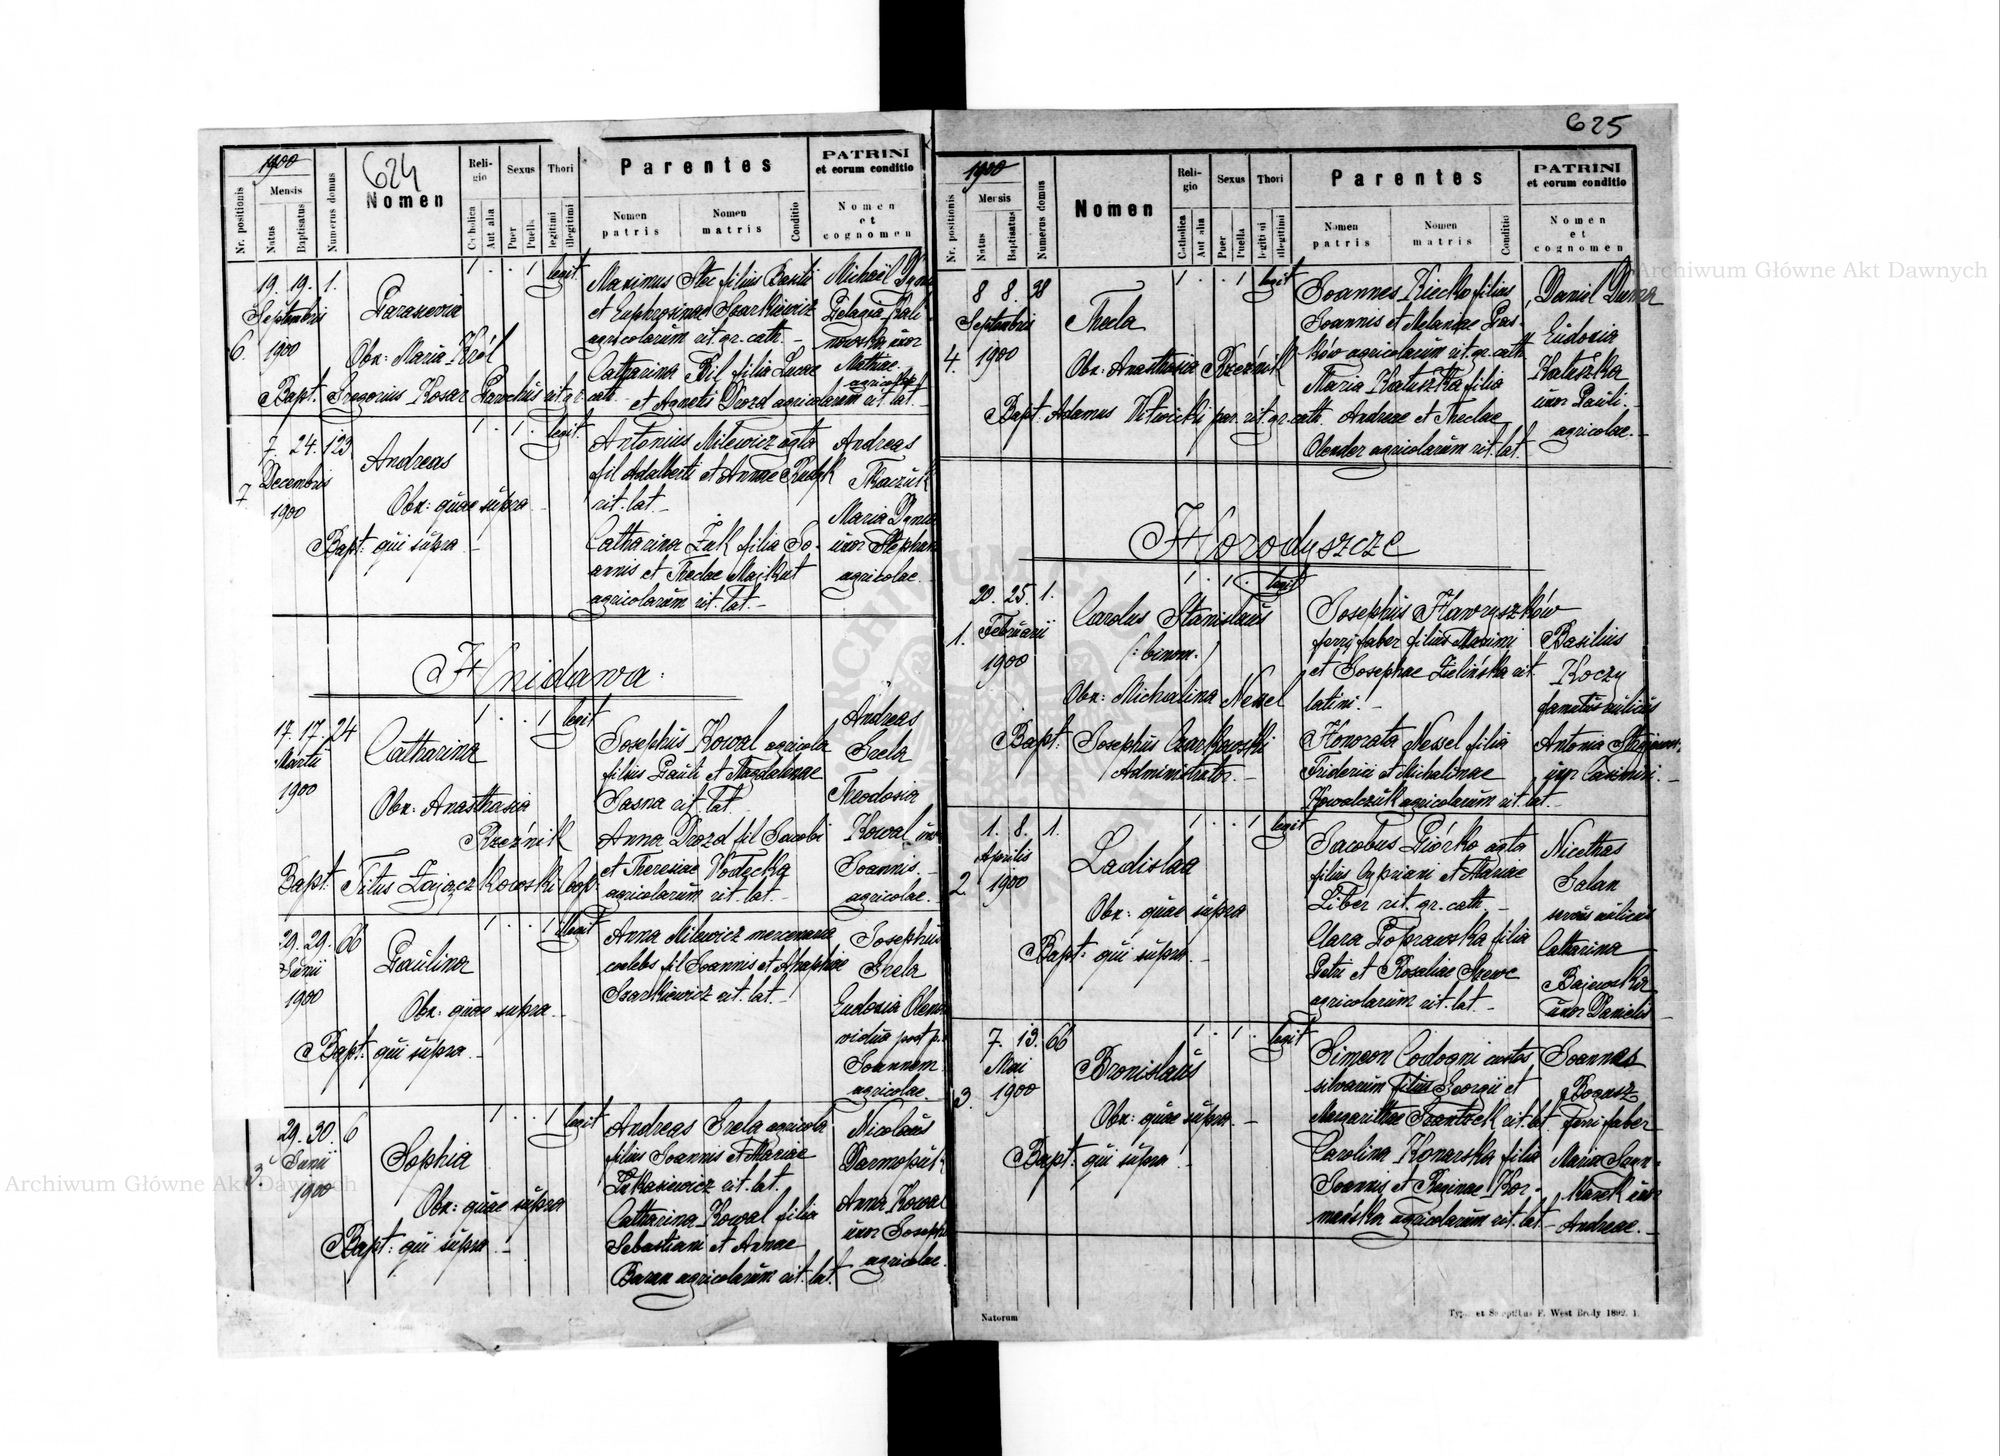 624
1900
Nr. positionis
Mensis
Natus
Baptisatus
Numerus domus
Nomen
Religio
Catholica
Aut alia
Sexus
Puer
Puella
Thori
legitimi
illegitimi
Parentes
Nomen patris
Nomen matris
Conditio
PATRINI
et eorum conditio
Nomen
et
cognomen
6. 19. 19. 1. Septembris 1900
Parascevia
1 . . 1 legit
Obx: Maria Król
Bapt. Gregorius Kosar Parochus rit. gr. cath.
Maximus Stec filius Basilii
et Euphrosinae Szarkiewicz
agricolarum rit. gr. cath. –
Catharina Bil filia Lucae
et Agnetis Drozd agricolarum rit. lat.
Michaël
Pelagia Kali-
nowska uxor
Mathiae
agricolae
7 7. 24. 123 Decembris 1900
Andreas
1 . 1 . legit.
Obx: quae supra
Bapt: qui supra –
Antonius Milewicz agta
fil Adalberti et Annae
rit. lat. –
Catharina Żuk filia Jo-
annis et Theclae
agricolarum rit. lat. –
Andreas
Tkaczuk
Maria
uxor
agricolae.
Hnidawa:
17. 17. 24 Martii 1900
Catharina
1 . . 1 legit
Obx: Anasthasia
Rzeźnik
Bapt. Titus Zajączkowski Coop.
Josephus Kowal agricola
filius Pauli et Magdalenae
Sasna rit. lat.
Anna Drozd fil Jacobi
et Theresiae Wodecka
agricolarum rit. lat. –
Andreas
Grela
Theodosia
Kowal uxor
Joannis
agricolae.
29. 29. 66 Junii 1900
Paulina
1 . . 1 illegit
Obx: quae supra –
Bapt: qui supra –
Anna Milewicz mercenaria
coelebs fil Joannis et Ahaphiae
Szarkiewicz rit. lat. –
Josephus
Grela
Eudosia
vidua post p.
Joannem
agricolae.
3. 29. 30. 6 Junii 1900
Sophia
1 . . 1 legit
Obx: quae supra
Bapt: qui supra –
Andreas Grela agricola
filius Joannis et Mariae
Łukasiewicz rit. lat.
Catharina Kowal filia
Sebastiani et Annae
Baran agricolarum rit. lat.
Nicolaus
Anna Kowal
uxor Josephi
agricolae.
625
1900
Nr. positionis
Mensis
Natus
Baptisatus
Numerus domus
Nomen
Religio
Catholica
Aut alia
Sexus
Puer
Puella
Thori
legitimi
illegitimi
Parentes
Nomen patris
Nomen matris
Conditio
PATRINI
et eorum conditio
Nomen
et
cognomen
4. 8 8. 38 Septembris 1900
Thecla
1 . . 1 legit
Obx: Anasthasia Rzeźnik
Bapt: Adamus Witwicki par. rit. gr. cath.
Joannes Kiecko filius
Joannis et Melaniae Pas-
ków agricolarum rit. gr. cath
Maria Katuszka filia
Andreae et Theclae
Olender agricolarum rit. lat.
Daniel Duma
Eudosia
Katuszka
uxor Pauli
agricolae. –
Horodyszcze
1. 20. 25. 1. Februarii 1900
Carolus Stanislaus
(: binom. )
1 . 1 . legit
Obx: Michalina Nessel
Bapt: Josephus Czarkowski
Administrator. –
Josephus Hawryszków
ferrifaber filius Maximi
et Josephae Zielińska rit.
latini. –
Honorata Nessel filia
Friderici et Michalinae
Kowalczuk agricolarum rit. lat. –
Basilius
Koczy
famulus aulicus
Antonia
uxor Casimiri. –
2 1. 8. 1. Aprilis 1900
Ladislaa
1 . . 1 legit
Obx: quae supra
Bapt: qui supra –
Jacobus Piórko agta
filius Cypriani et Mariae
Liber rit. gr. cath –
Clara Poprawska filia
Petri et Rosaliae Szewc
agricolarum rit. lat. –
Nicethas
Galan
servus aulicus
Catharina
Bajewska
uxor Danielis –
3. 7. 13. 66 Mai 1900
Bronislaus
1 . 1 . legit
Obx: quae supra. –
Bapt: qui supra –
Simeon Codogni custos
silvarum filius Georgii et
Margarithae Frantzek rit. lat
Carolina Konarska filia
Joannis et Reginae Kor-
mańska agricolarum rit. lat –
Joannes
Bogusz
ferri faber
Maria
uxor
Andreae. –
Natorum
Typ. et Sumptibus F. West Brody 1892. 1.
Archiwum Główne Akt Dawnych
Archiwum Główne Akt Dawnych